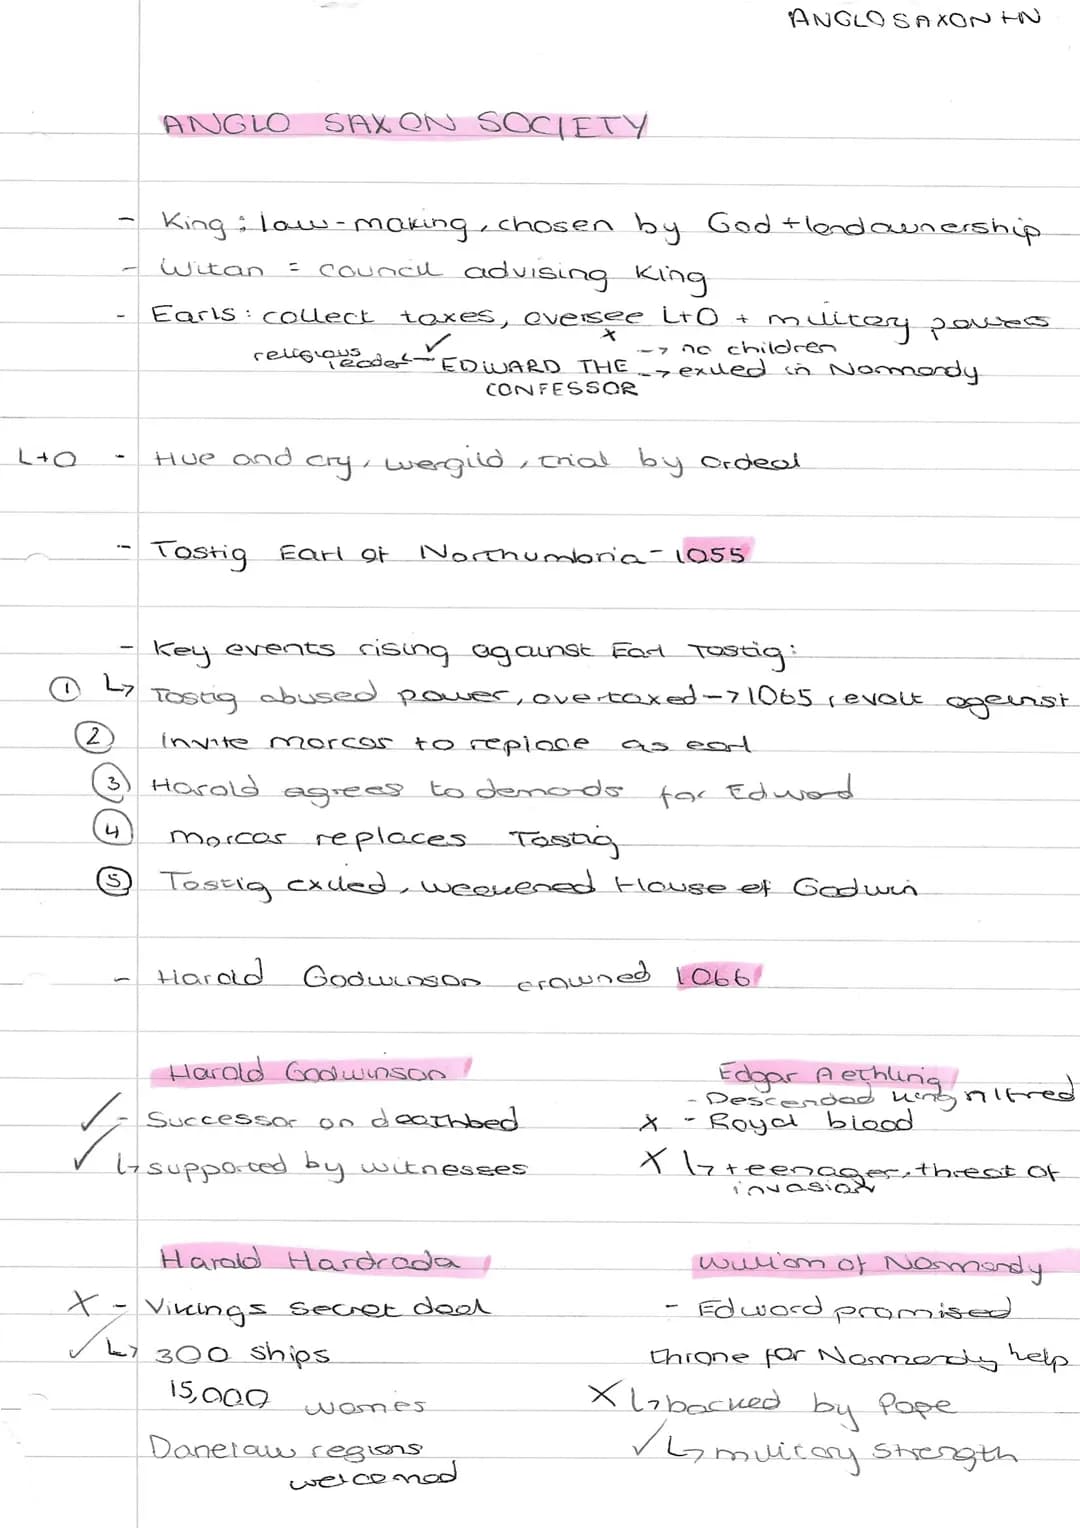 ANGLO SAXON +N
ANGLO SAXON SOCIETY
- King : law-making, chosen by God + landownership
- Witan = council advising King
- Earls : collect taxes, oversee L+O + military powers
religious leader ✓ EDWARD THE CONFESSOR x -> no children
-> exiled in Normandy
L+O - Hue and cry, wergild, trial by ordeal
- Tostig Earl of Northumbria - 1055
- Key events rising against Earl Tostig:
① ↳ Tostig abused power, overtaxed -> 1065, revolt against
② Invite morcar to replace as earl
③ Harold agrees to demands for Edward
④ morcar replaces Tostig
⑤ Tostig exiled, weakened House of Godwin
- Harold Godwinson crowned 1066
Harold Godwinson
✓ - Successor on deathbed
✓ ↳ supported by witnesses
Edgar Aethling
- Descended king Alfred
X - Royal blood
X ↳ teenager, threat of
invasion
Harold Hardrada
X - Vikings secret deal
✓ ↳ 300 ships
15,000 warriors
Danelaw regions
welcomed
William of Normandy
- Edward promised
throne for Normandy help
X ↳ backed by Pope
✓ ↳ military strength